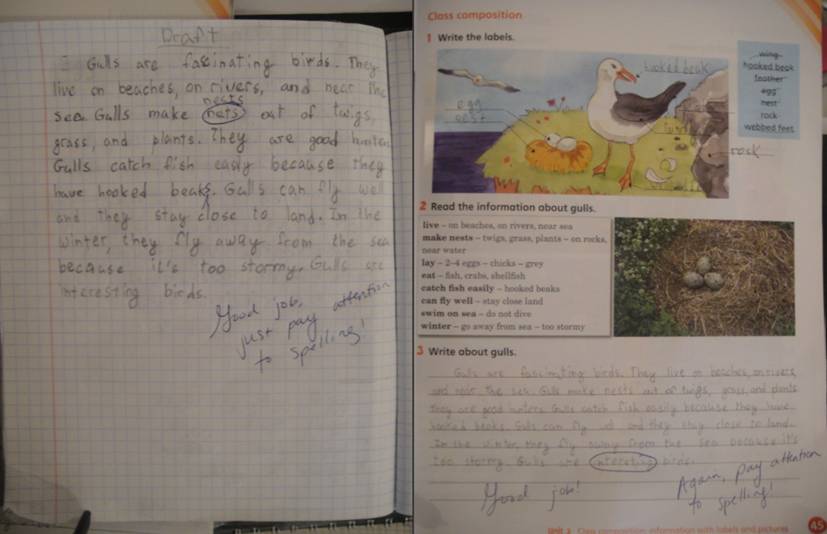 Draft
Gulls are fascinating birds. They
live on beaches, on rivers, and near the
nests
sea. Gulls make nets out of twigs,
grass, and plants. They are good hunters
Gulls catch fish easily because they
have hooked beaks. Gulls can fly well
and they stay close to land. In the
winter, they fly away from the sea
because it's too stormy. Gulls are
interesting birds.
Good job,
just pay attention
to spelling!
Class composition
1 Write the labels.
hooked beak
egg
nest
rock
wing
hooked beak
feather
egg
nest
rock
webbed feet
2 Read the information about gulls.
live – on beaches, on rivers, near sea
make nests – twigs, grass, plants – on rocks,
near water
lay – 2–4 eggs – chicks – grey
eat – fish, crabs, shellfish
catch fish easily – hooked beaks
can fly well – stay close land
swim on sea – do not dive
winter – go away from sea – too stormy
3 Write about gulls.
Gulls are fascinating birds. They live on beaches, on rivers,
and near the sea. Gulls make nests out of twigs, grass, and plants
They are good hunters. Gulls catch fish easily because they have
hooked beaks. Gulls can fly and they stay close to land.
In the winter, they fly away from the sea because it's
too stormy. Gulls are interesting birds.
Good job!
Again, pay attention
to spelling!
Unit 3 Class composition: information with labels and pictures
45